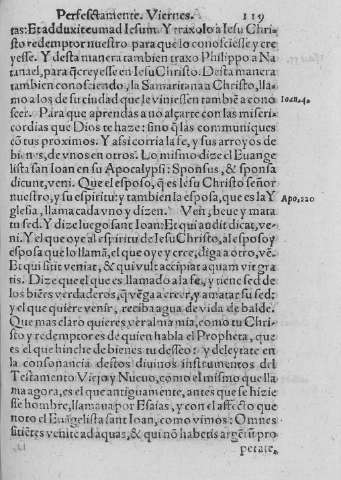 Perfectamente. Viernes. 119
tas: Et adduxit eum ad Iesum. Y traxolo a Iesu Chri-
sto redemptor nuestro para que lo conosciesse y cre
yesse. Y desta manera tambien traxo Philippo a Na
tanael, para q̃ creyesse en Iesu Christo. Desta manera
tambien conosciendo, la Samaritana a Christo, lla-
mo a los de su ciudad que le viniessen tambiẽ a cono
scer. Para que aprendas a no alçarte con las miseri-
cordias que Dios te haze: sino q̃ las communiques
cõ tus proximos. Y assi corria la fe, y sus arroyos de
bienes, de vnos en otros. Lo mismo dize el Euange
lista san Ioan en su Apocalypsi: Sponsus, & sponsa
dicunt, veni. Que el esposo, q̃ es Iesu Christo señor
nuestro, y su espiritu: y tambien la esposa, que es la Y
glesia, llama cada vno y dizen. Ven, beue y mata
tu sed. Y dize luego sant Ioan: Et qui audit dicat, ve-
ni. Y el que oye al espiritu de Iesu Christo, al esposo y
esposa que lo llamã, el que oye y cree, diga a otro, vẽ.
Et qui sitit veniat, & qui vult accipiat aquam vitę gra
tis. Dize que el que es llamado a la fe, y tiene sed de
los biẽes verdaderos, q̃ vẽga a creer, y a matar su sed:
y el que quiere venir, reciba agua de vida de balde.
Que mas claro quieres ver alma mia, como tu Chri-
sto y redemptor es de quien habla el Propheta, que
es el que hinche de bienes tu desseo: y deleytate en
la consonancia destos diuinos instrumentos del
Testamento Viejo y Nueuo, como el mismo que lla
ma agora, es el que antiguamente, antes que se hizie
sse hombre, llamaua por Esaias, y con el affecto que
noto el Euangelista sant Ioan, como vimos: Omnes
sitiẽtes venite ad aquas, & qui nõ habetis argẽtũ pro
perate.
Ioan. 4.
Apo, 220